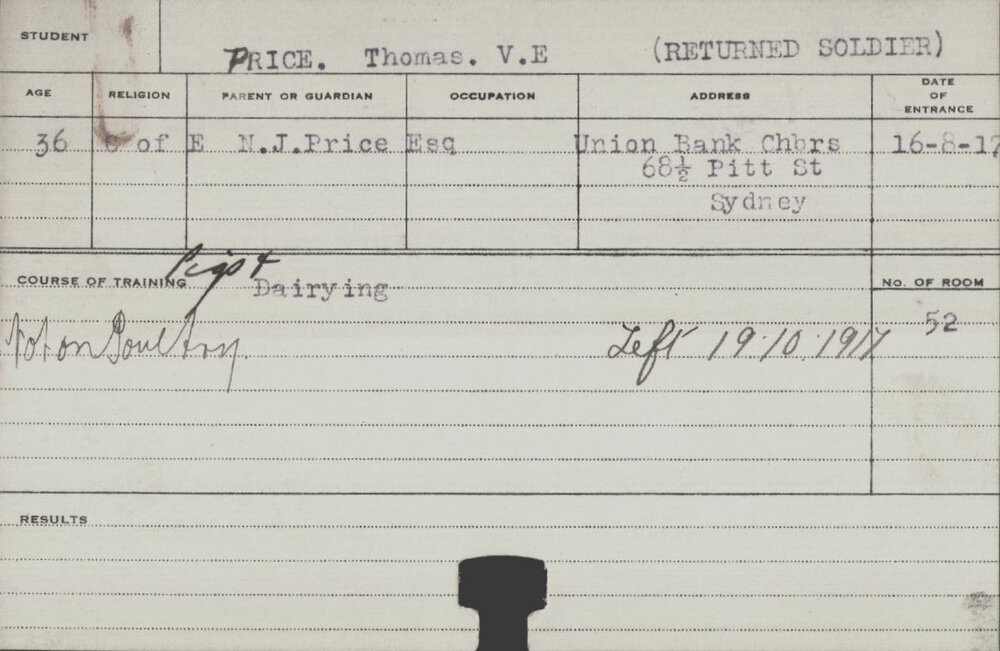 STUDENT
PRICE. Thomas. V.E (RETURNED SOLDIER)
AGE RELIGION PARENT OR GUARDIAN OCCUPATION ADDRESS DATE OF ENTRANCE
36 C of E N.J.Price Esq Union Bank Chbrs 16-8-17
68½ Pitt St
Sydney
COURSE OF TRAINING Pigs & Dairying No. OF ROOM
Not on Poultry. Left 19.10.1917 52
RESULTS